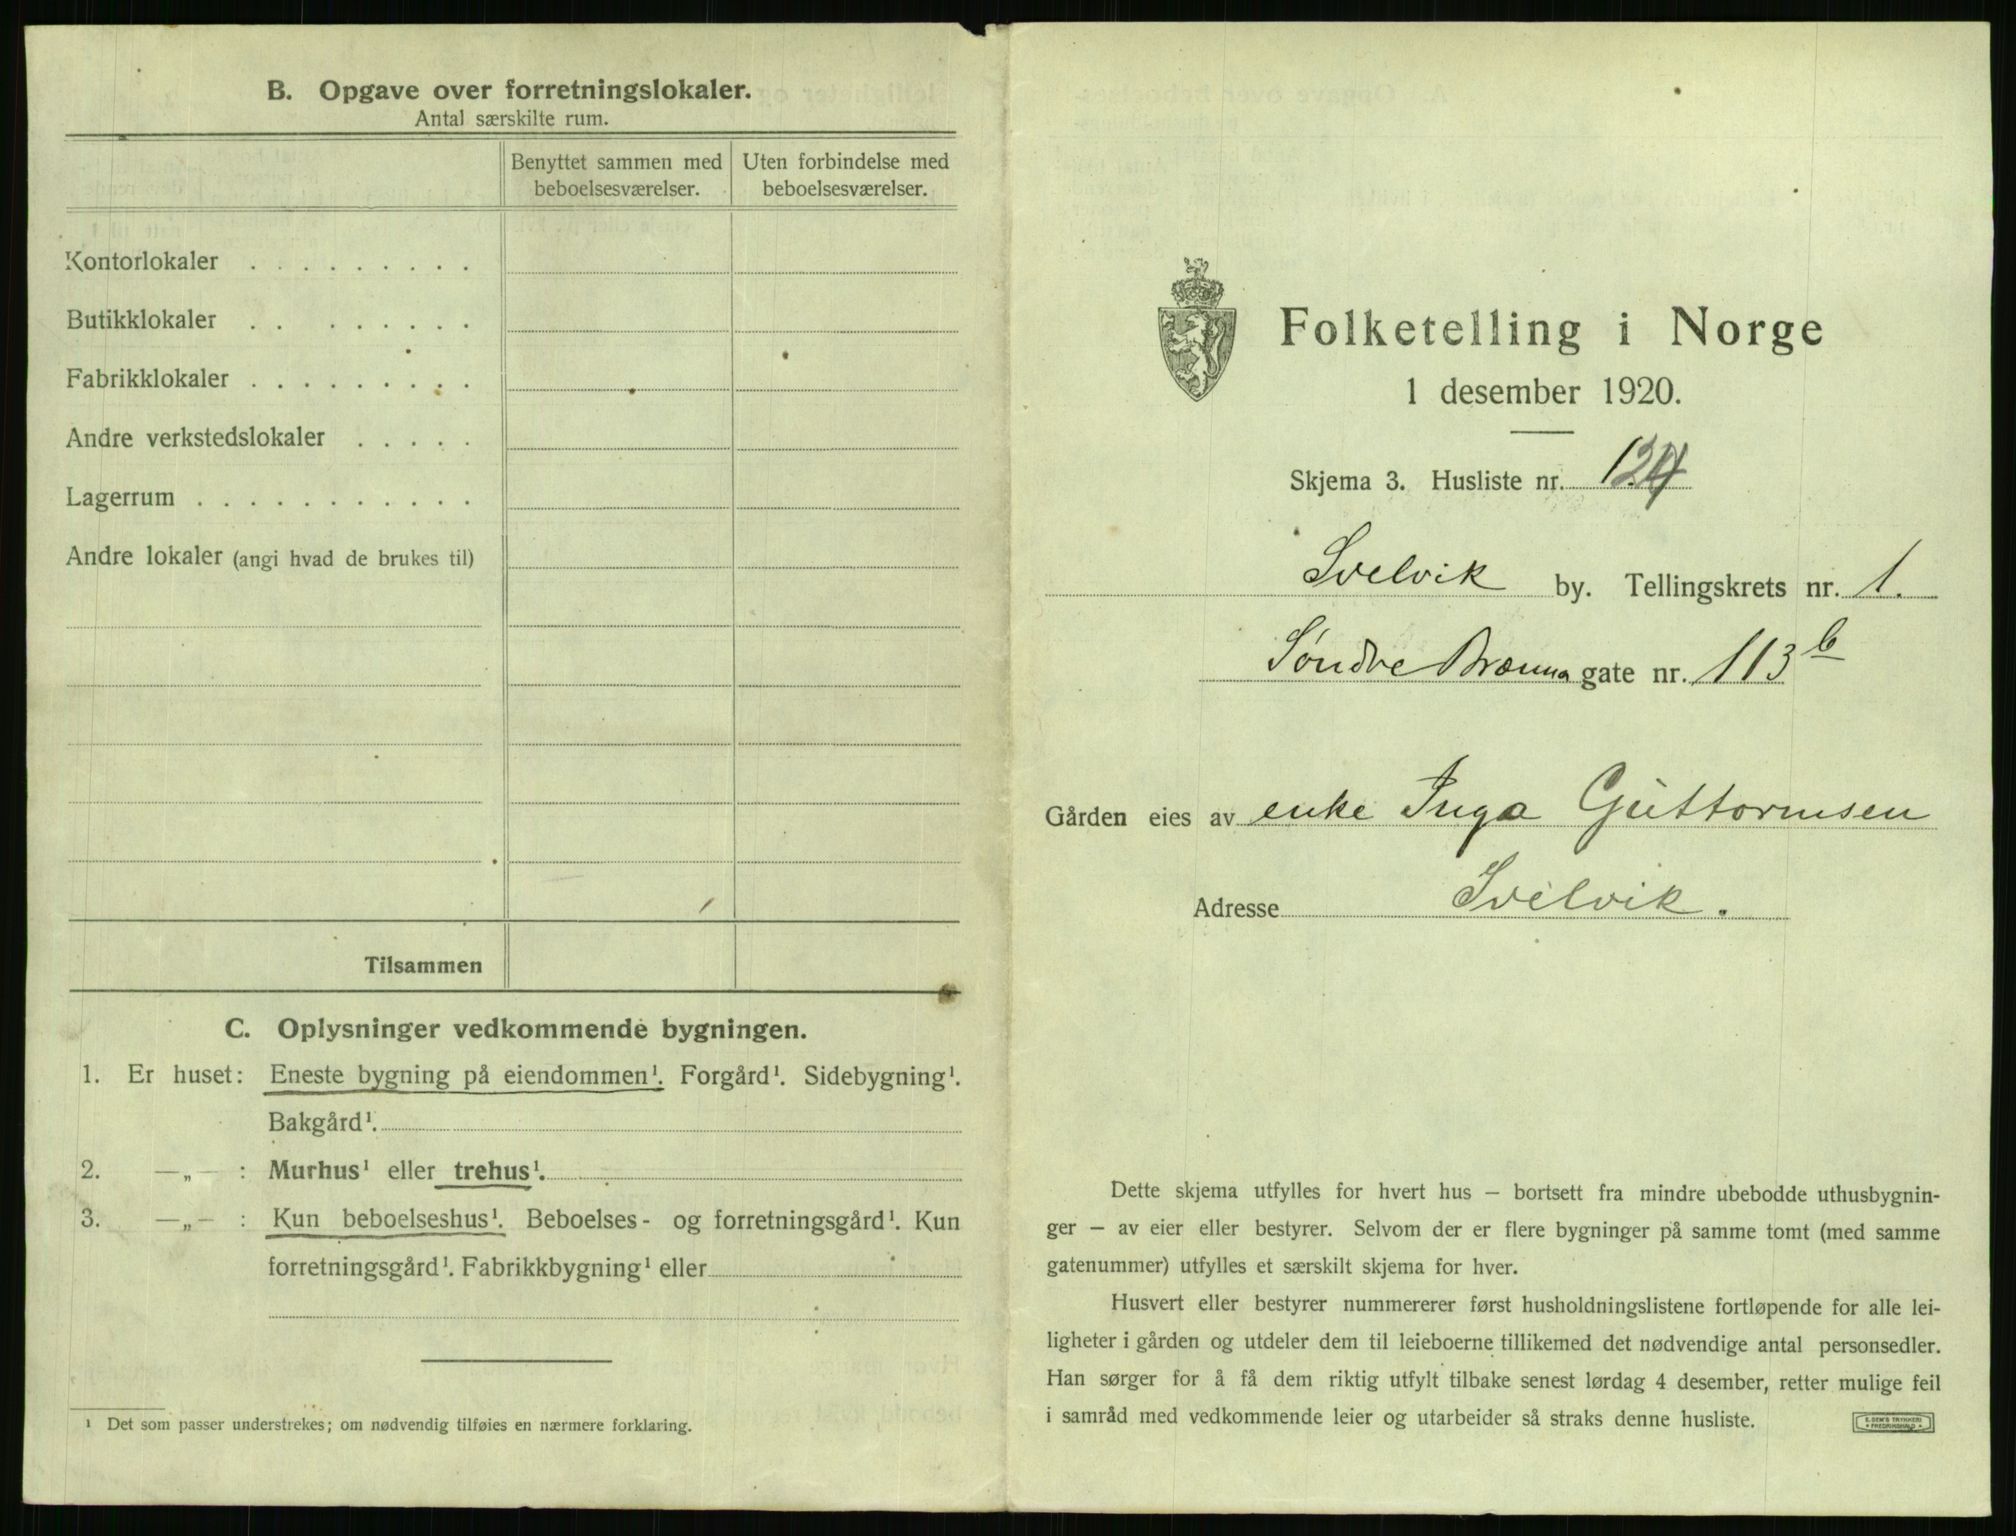 B. Opgave over forretningslokaler.
Antal særskilte rum.
Benyttet sammen med beboelsesværelser.
Uten forbindelse med beboelsesværelser.
Kontorlokaler . . . . . . . . .
Butikklokaler . . . . . . . .
Fabrikklokaler . . . . . . . . .
Andre verkstedslokaler . . . . .
Lagerrum . . . . . . . . . . .
Andre lokaler (angi hvad de brukes til)
Tilsammen
C. Oplysninger vedkommende bygningen.
1. Er huset: Eneste bygning på eiendommen¹. Forgård¹. Sidebygning¹.
Bakgård¹.
2. —„— : Murhus¹ eller trehus¹.
3. —„— : Kun beboelseshus¹. Beboelses- og forretningsgård¹. Kun
forretningsgård¹. Fabrikkbygning¹ eller
¹ Det som passer understrekes; om nødvendig tilføies en nærmere forklaring.
Folketelling i Norge
1 desember 1920.
Skjema 3. Husliste nr. 124
Svelvik by. Tellingskrets nr. 1.
Søndre Brænna gate nr. 113b
Gården eies av enke Inga Guttormsen
Adresse Svelvik.
Dette skjema utfylles for hvert hus – bortsett fra mindre ubebodde uthusbygnin-
ger – av eier eller bestyrer. Selvom der er flere bygninger på samme tomt (med samme
gatenummer) utfylles et særskilt skjema for hver.
Husvert eller bestyrer nummererer først husholdningslistene fortløpende for alle lei-
ligheter i gården og utdeler dem til leieboerne tillikemed det nødvendige antal personsedler.
Han sørger for å få dem riktig utfylt tilbake senest lørdag 4 desember, retter mulige feil
i samråd med vedkommende leier og utarbeider så straks denne husliste.
E. SEM'S TRYKKERI
FREDRIKSHALD